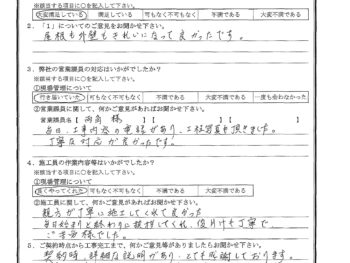 ※該当する項目に○を記入して下さい。
大変満足している 満足している 可も無く不可も無く 不満である 大変不満である
2.「1」についてのご意見をお聞かせ下さい。
屋根も外壁もきれいになって良かったです。
3. 弊社の営業職員の対応はいかがでしたか?
※該当する項目に○を記入して下さい。
①現場管理について
行き届いていた 可もなく不可もなく 不満である 大変不満である 一度も会わなかった
②営業職員に関して、何かご意見があればお聞かせ下さい。
営業職員名【 両角 様 】【 】【 】
毎日、工事内容の連絡があり、工程写真も頂きました。
丁寧な対応が良かったです。
4. 施工員の作業内容等はいかがでしたか?
※該当する項目に○を記入して下さい。
①現場管理について
良くやってくれた 可もなく不可もなく 不満である 大変不満である
②施工員に関して、何かご意見があればお聞かせ下さい。
親方が丁寧に施工してくれて良かった
毎日始まりと終わりに挨拶してくれ、後片付も丁寧で、
ご苦労様でした。
5. ご契約時点から工事完工まで、何かご意見等がありましたらお聞かせ下さい。
契約時、詳細な説明があり、とても感謝しております。